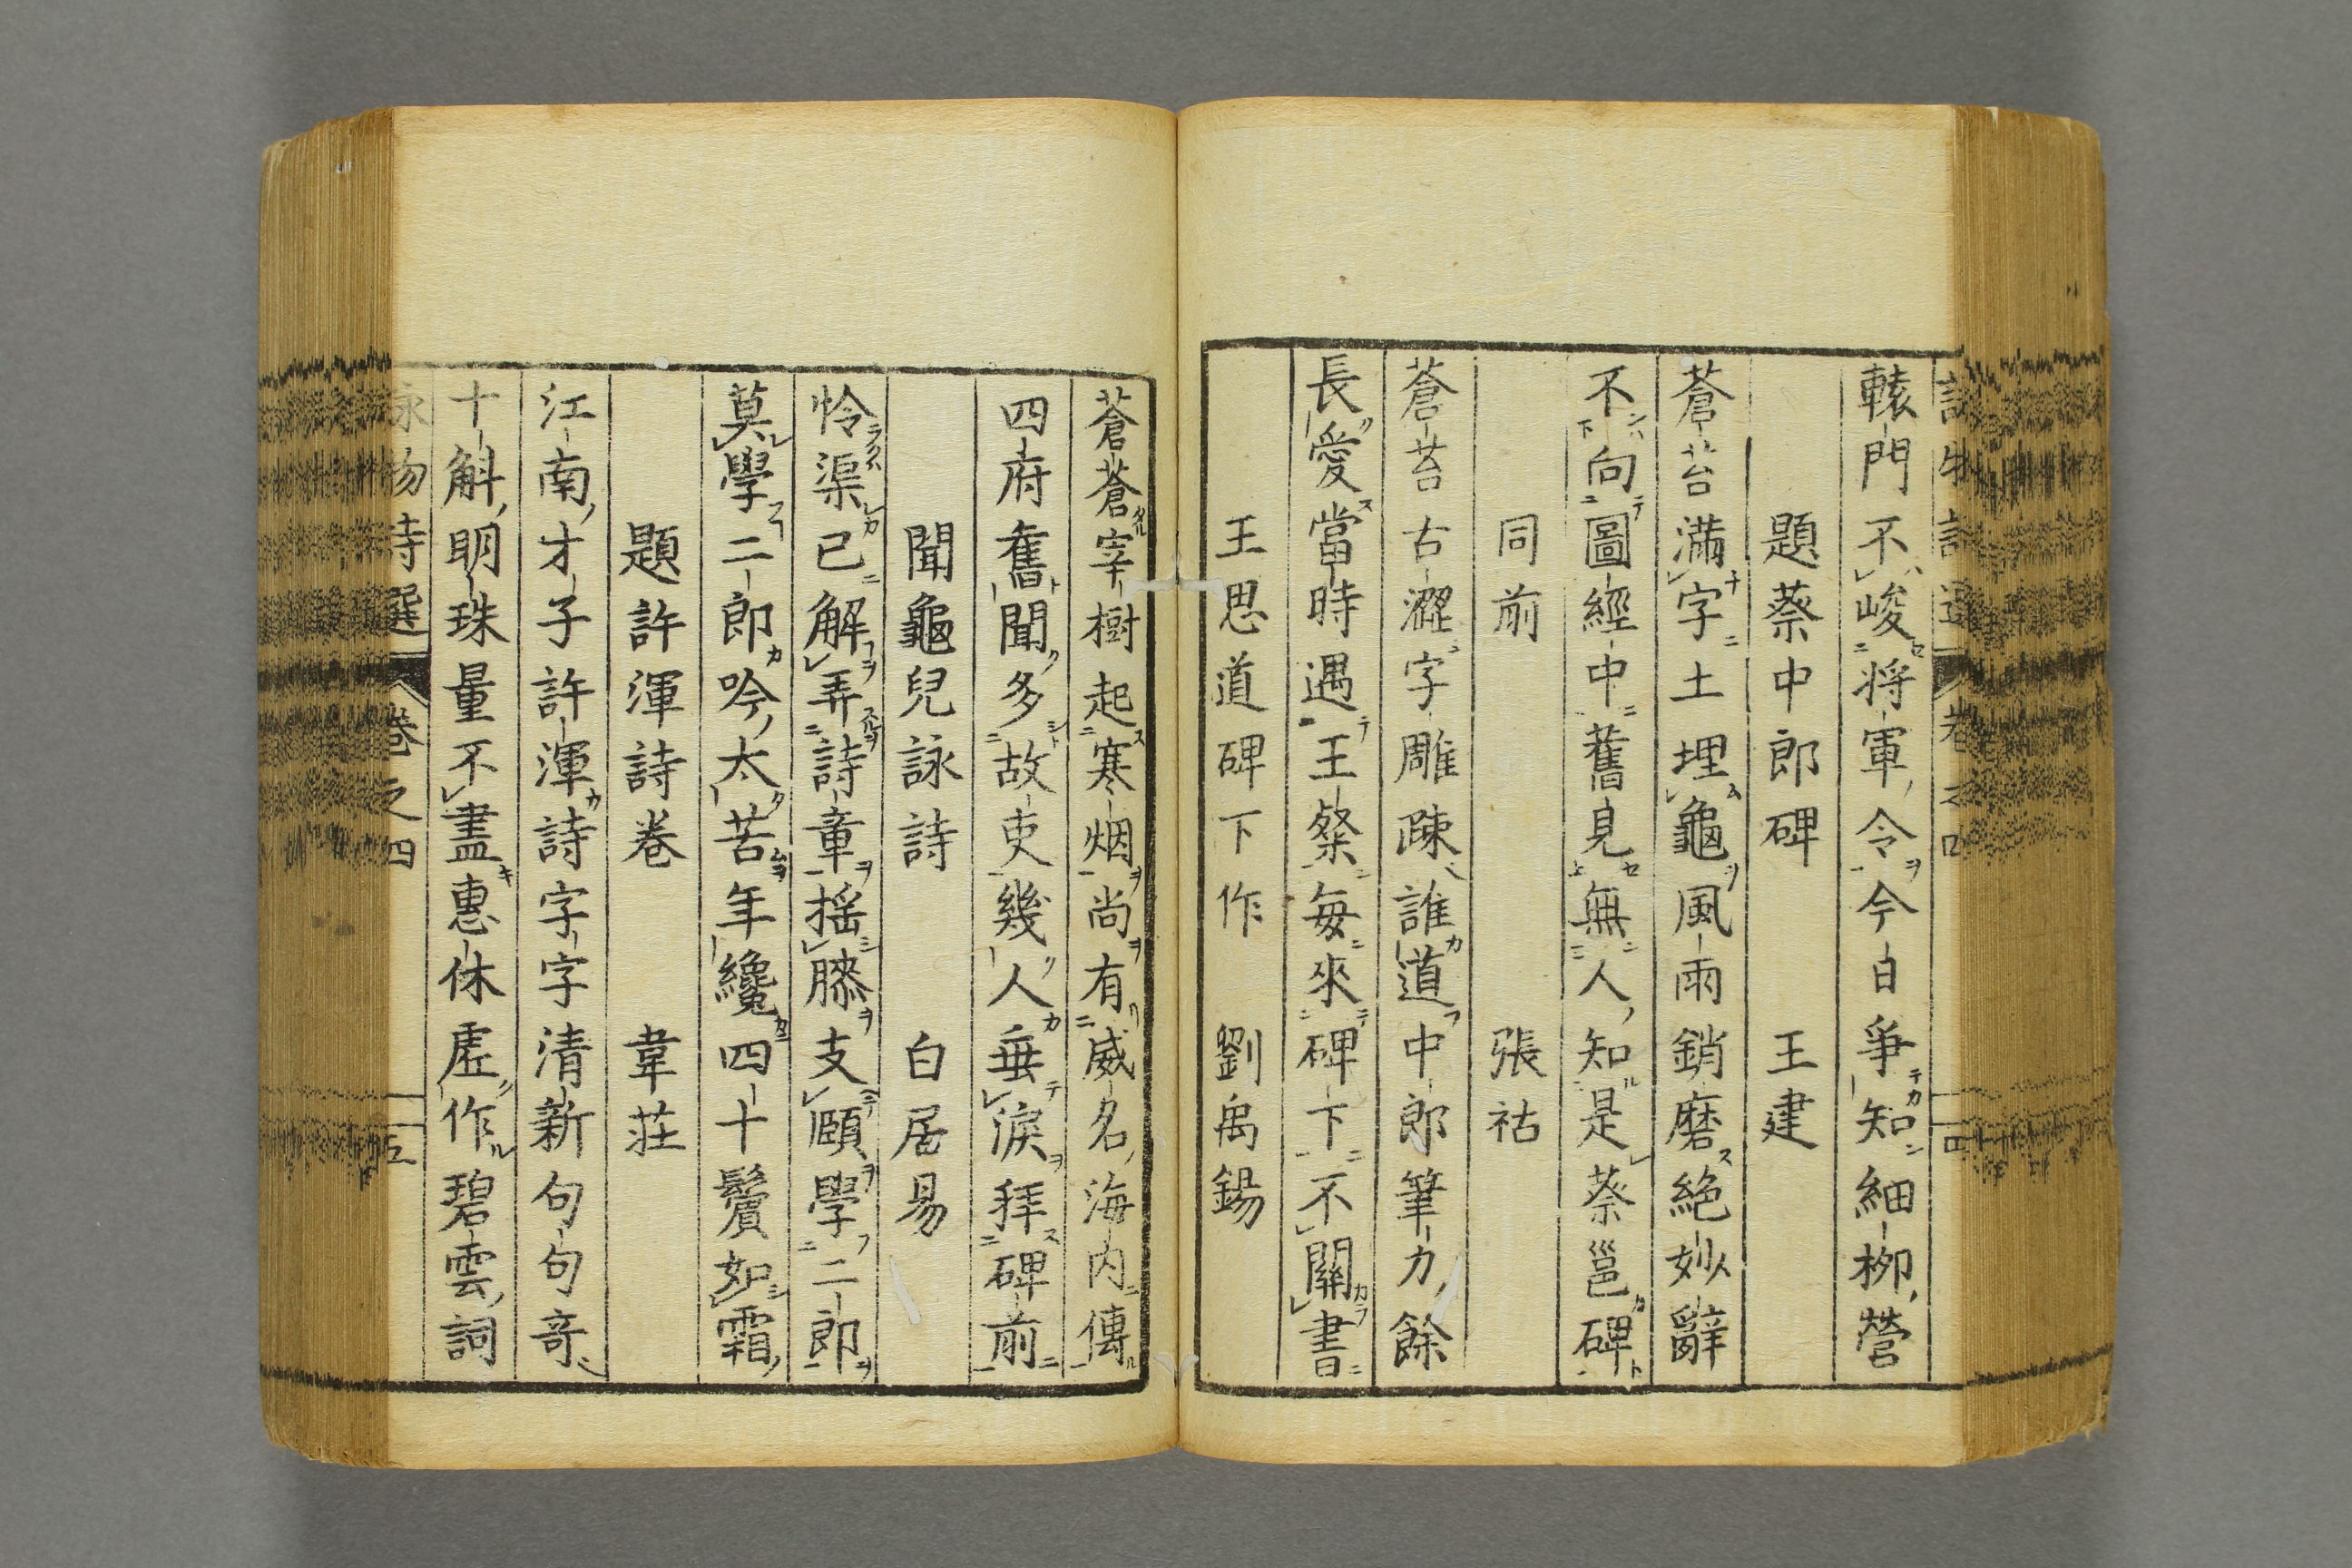 轅門不峻将軍令今日爭知細柳營
題蔡中郎碑 王建
蒼苔滿字土埋龜風雨銷磨絶妙辭
不向圖經中舊見無人知是蔡邕碑
同前 張祜
蒼苔古澀字雕疎誰道中郎筆力餘
長愛當時遇王粲每來碑下不關書
王思道碑下作 劉禹錫
蒼蒼宰樹起寒烟尚有威名海内傳
四府舊聞多故吏幾人垂淚拜碑前
聞龜兒詠詩 白居易
怜渠已解弄詩章揺膝支頤學二郎
莫學二郎吟太苦年纔四十鬢如霜
題許渾詩卷 韋荘
江南才子許渾詩字字清新句句竒
十斛明珠量不盡惠休虚作碧雲詞
詠物詩選 卷之四 五